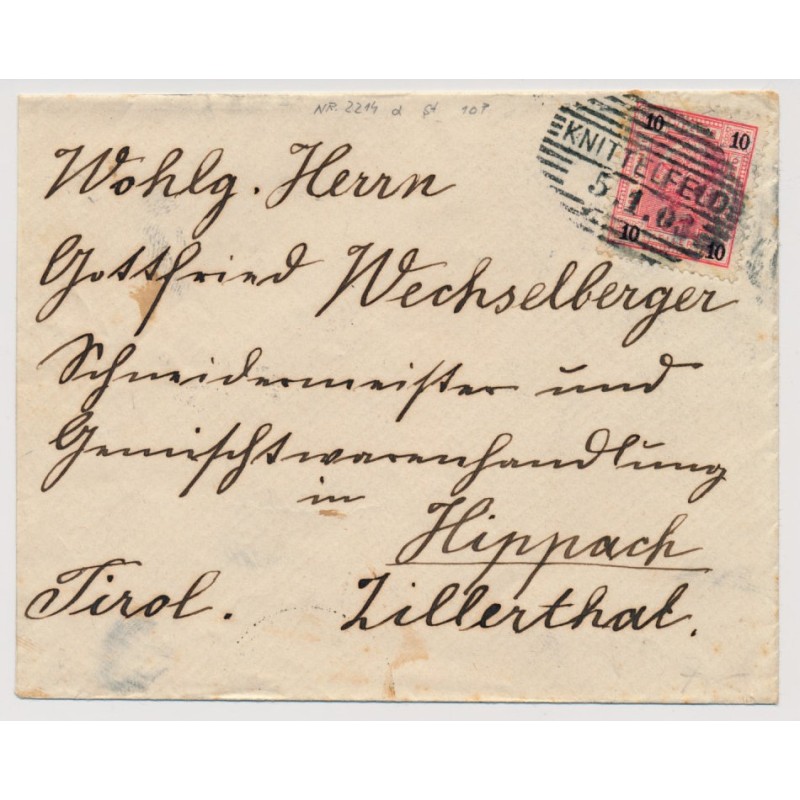 NR. 2214 d St 10?
10 10
KNITTELFELD
5 1.02
10 10
Wohlg. Herrn
Gottfried Wechselberger
Schneidermeister und
Gemischtwarenhandlung
in
Hippach
Tirol. Zillerthal.